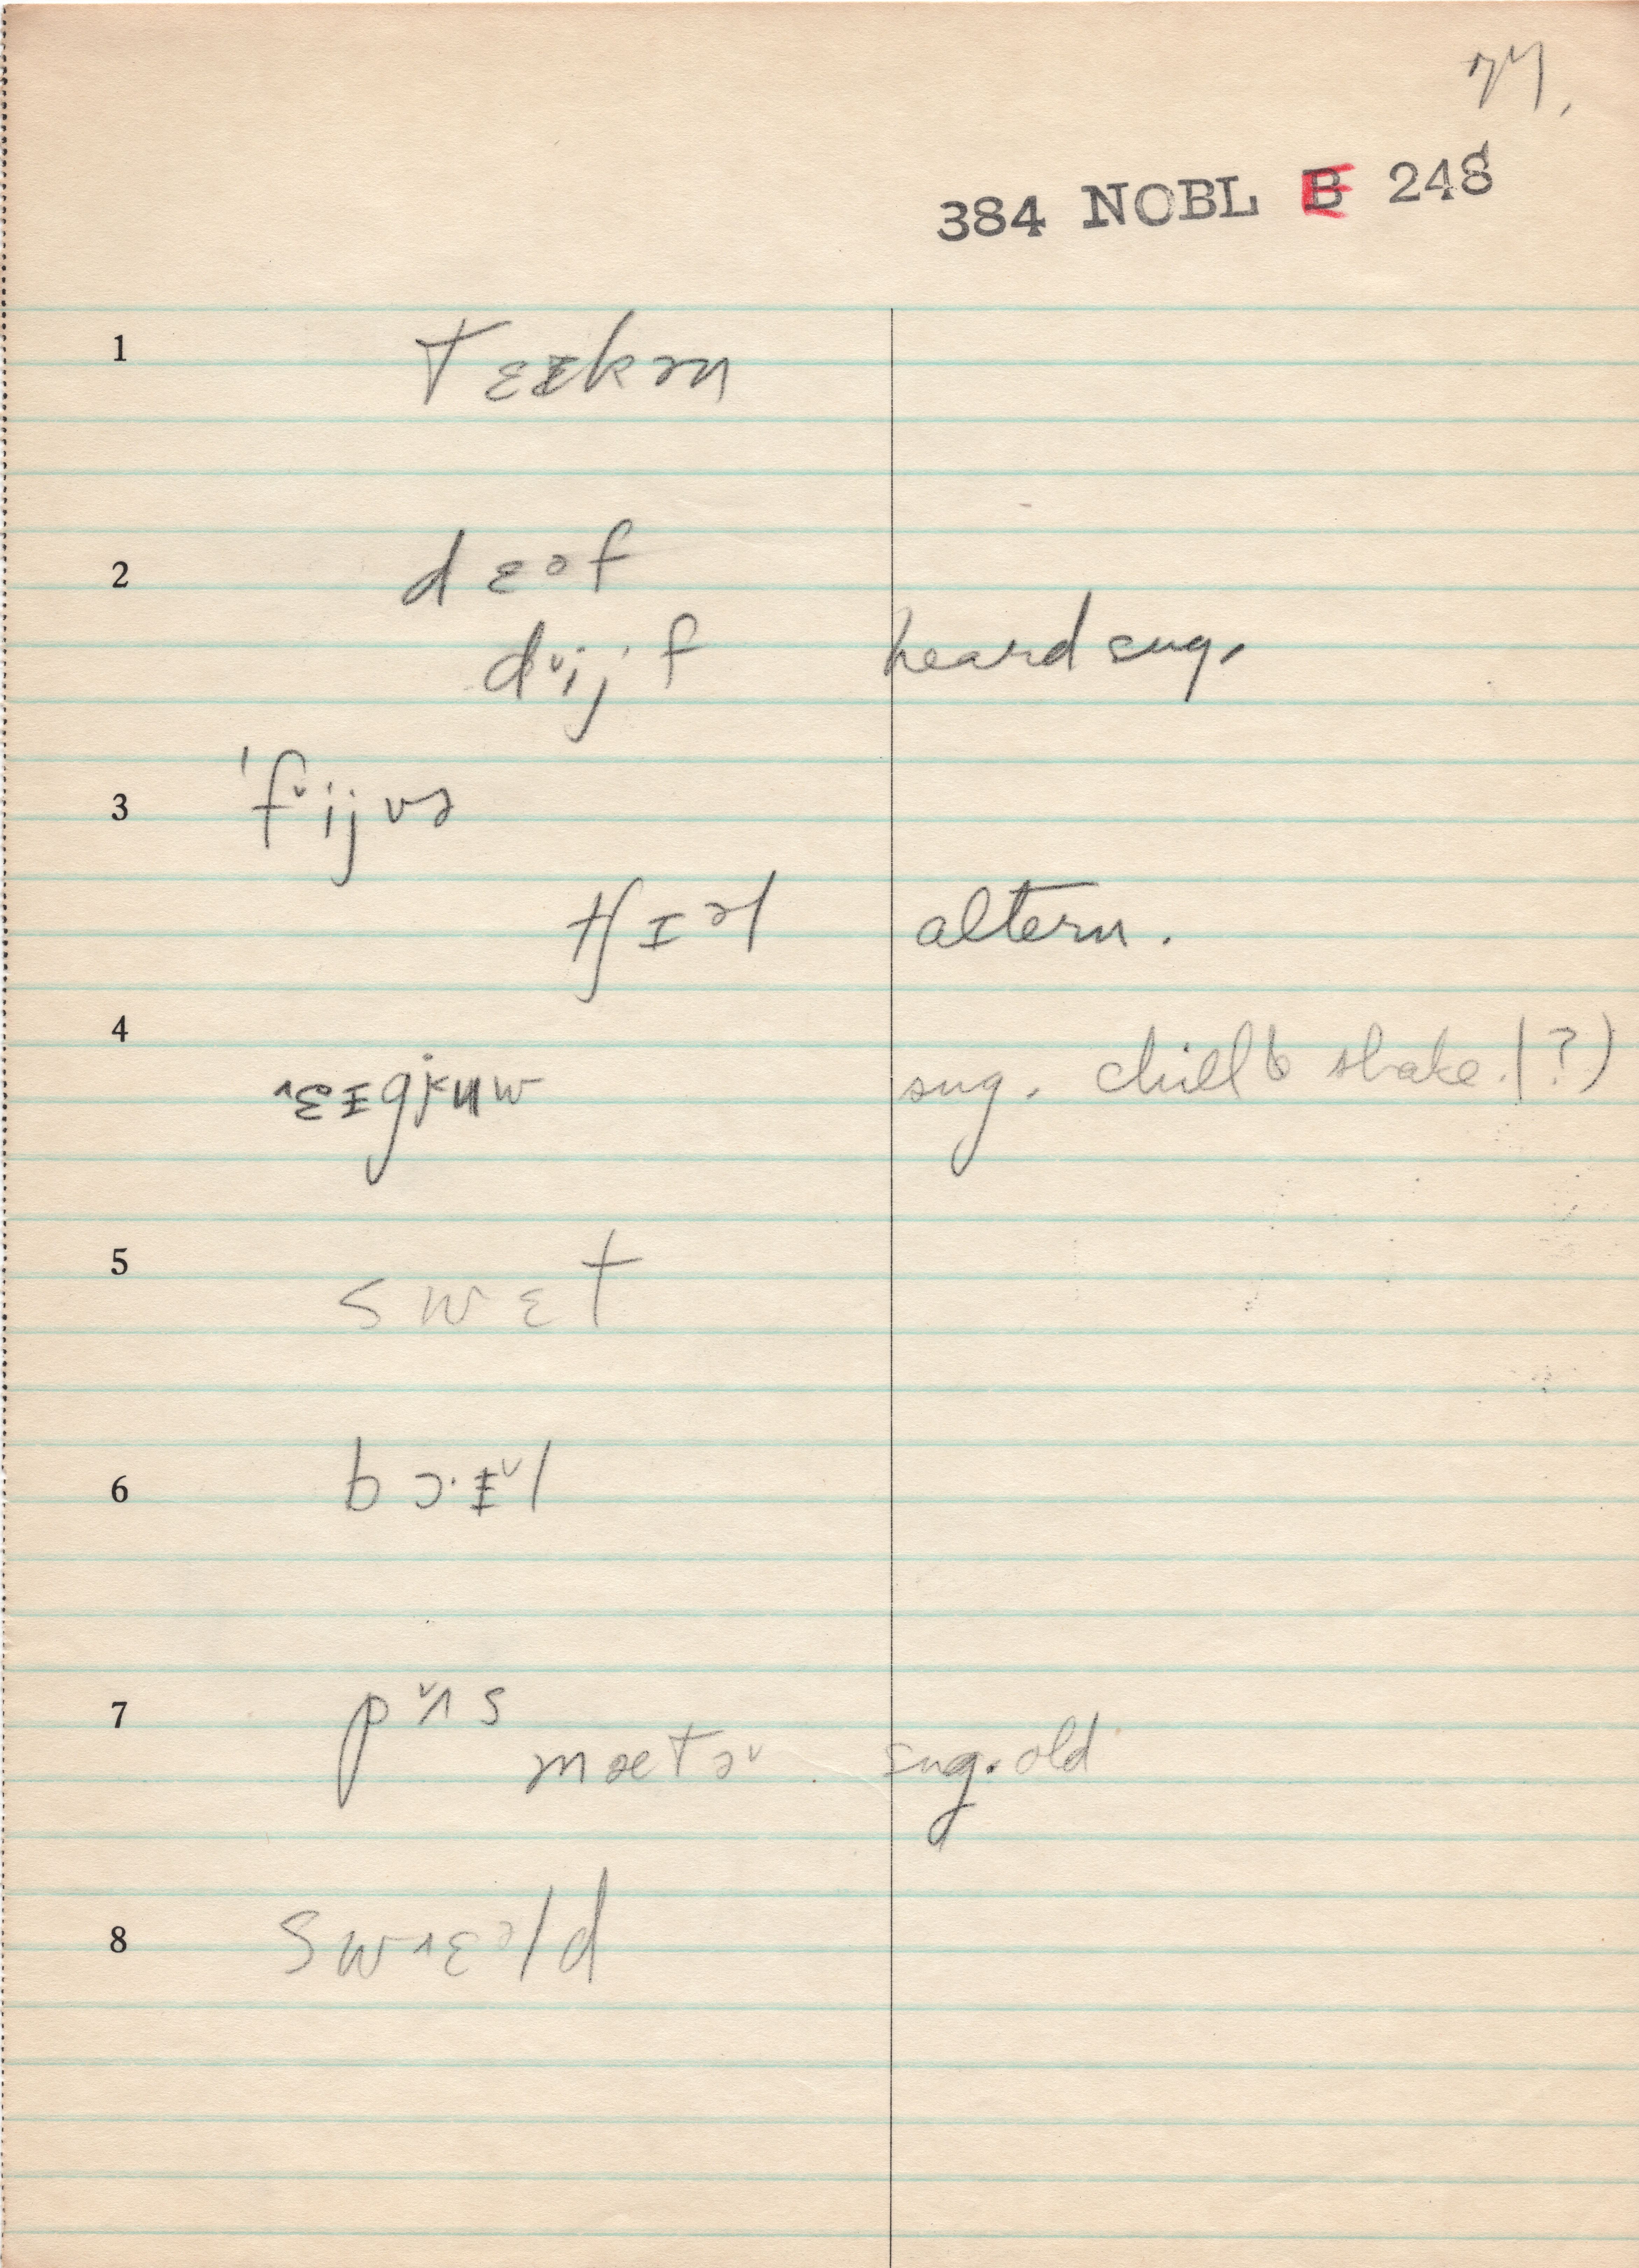 77.
384 NOBL E 248
1 tɛɪkən
2 dɛəf
dᵛijˑf heard sug.
3 ˈfᵛijvə
tʃɪəl altern.
4 sug. chill & shake (?)
5 swɛt
6 bɔˑɪᵛl
7 pᵛʌs
mætəᵛ sug. old
8 swɛəld